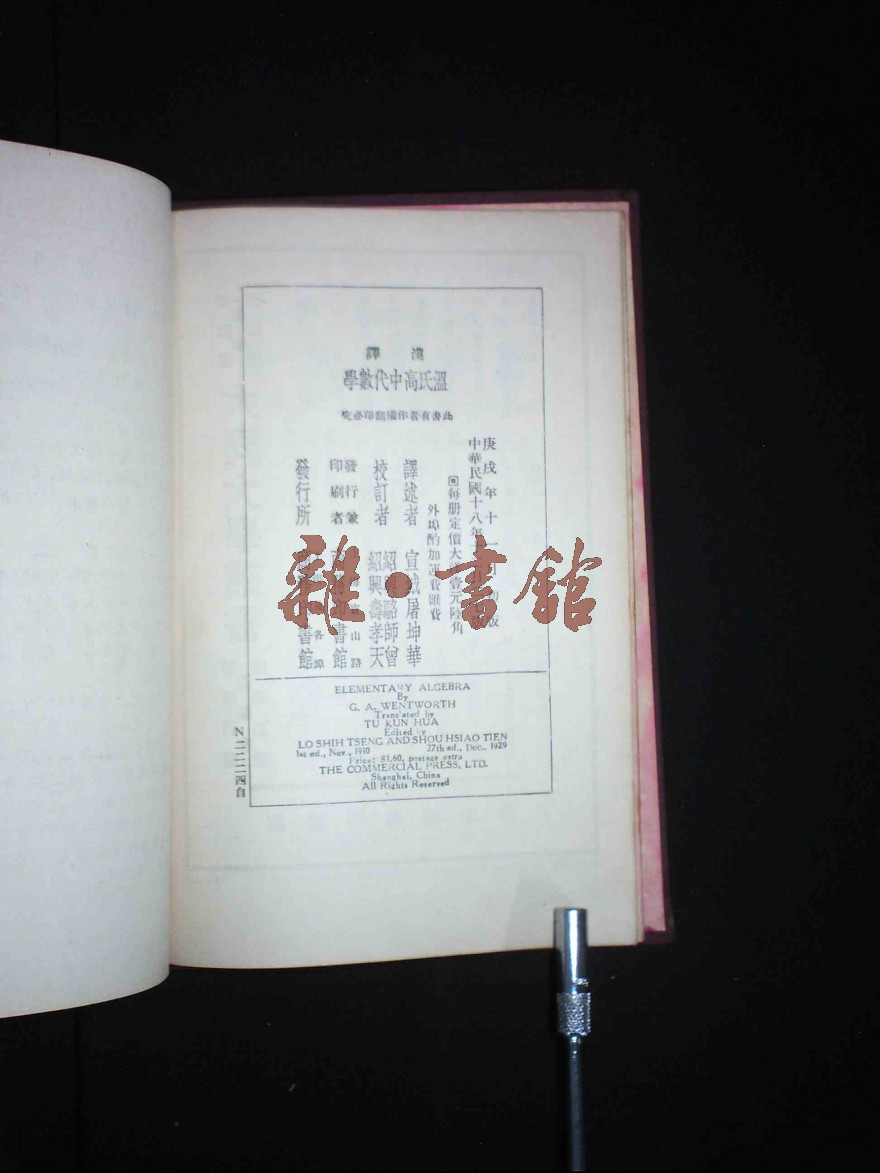 漢譯
溫氏高中代數學
此書有著作權翻印必究
庚戌年十一月初版
中華民國十八年
每册定價大洋壹元陸角
外埠酌加運費匯費
譯述者 宣城屠坤華
校訂者 紹興駱師曾 紹興壽孝天
發行兼印刷者 書館
發行所 書館
ELEMENTARY ALGEBRA
By
G. A. WENTWORTH
Translated by
TU KUN HUA
Edited by
LO SHIH TSENG AND SHOU HSIAO TIEN
1st ed., Nov., 1910 27th ed., Dec., 1929
Price: $1.60, postage extra
THE COMMERCIAL PRESS, LTD.
Shanghai, China
All Rights Reserved
N二二二四自
雜·書館